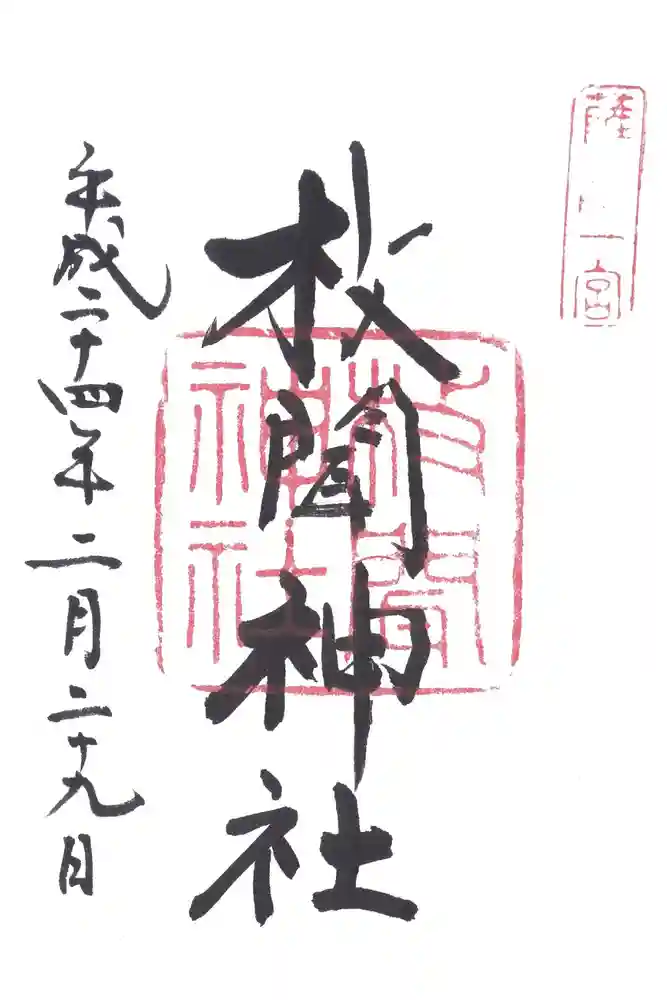 薩 一宮
枚聞神社
枚聞
神社
平成二十四年二月二十九日